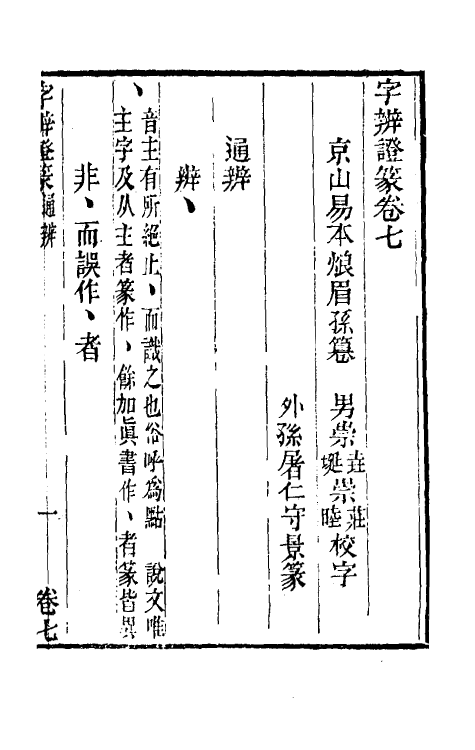 字辨證篆卷七
京山易本烺眉孫篹　男崇垚崇莊校字
埏　睦
外孫屠仁守景篆
通辨
辨丶
丶
音主有所絕止丶而識之也俗呼爲點　說文唯
主字及从主者篆作丶餘加眞書作丶者篆皆異
非丶而誤作丶者
字辨證篆通辨
一
卷七